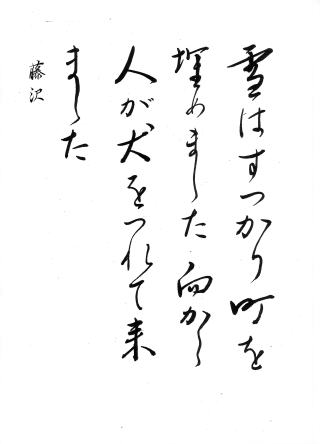 雪はすつかり町を
埋めました 向から
人が、犬をつれて来
ました
藤沢